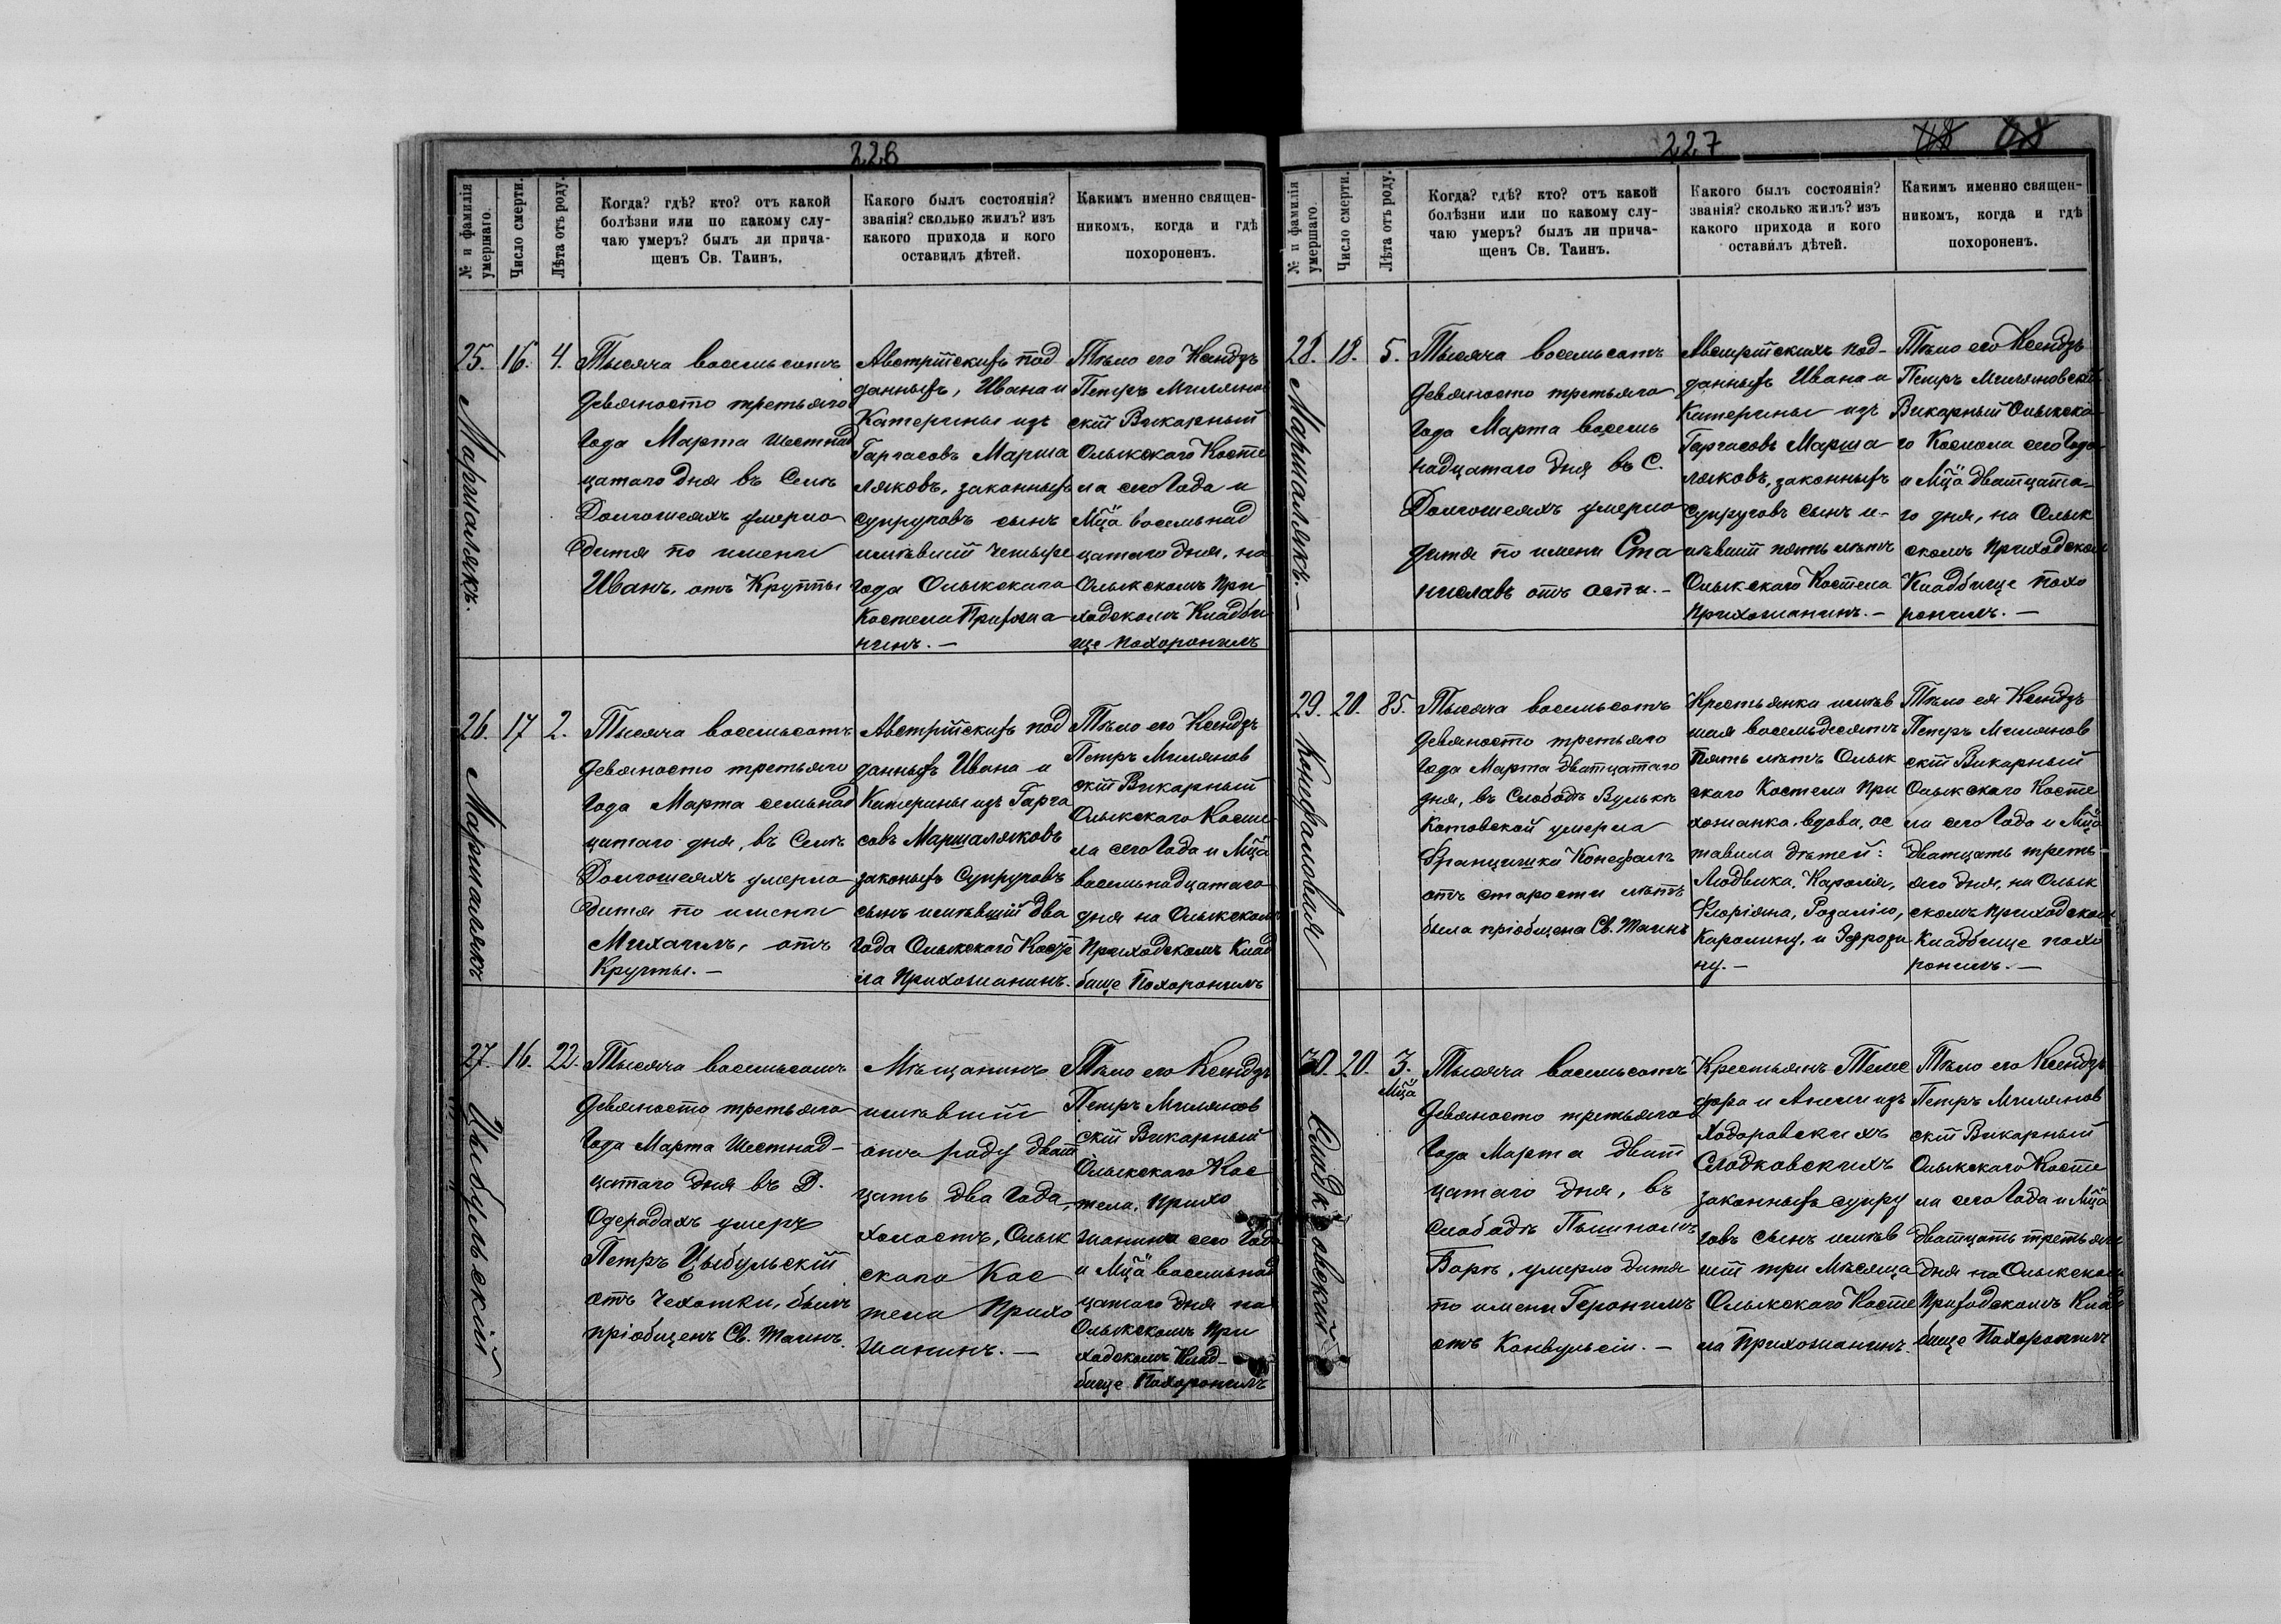 226
№ и фамилія умершаго.
Число смерти.
Лѣта отъ роду.
Когда? гдѣ? кто? отъ какой
болѣзни или по какому слу-
чаю умеръ? былъ ли прича-
щенъ Св. Таинъ.
Какого былъ состоянія?
званія? сколько жилъ? изъ
какого прихода и кого
оставилъ дѣтей.
Какимъ именно священ-
никомъ, когда и гдѣ
похороненъ.
25. Маршалякъ.
16.
4.
Тысяча восемьсотъ
девяносто третьяго
Года Марта шестнад
цатаго дня въ Селѣ
Долгошеяхъ умерло
дитя по имени
Иванъ, отъ Круппы
Австрійскихъ под
данныхъ, Ивана и
Катерины изъ
Гаргасовъ Марша
ляковъ, законныхъ
супруговъ сынъ
имѣвшій четыре
года Олыкскаго
Костела Прихожа
нинъ. —
Тѣло его Ксендзъ
Петръ Миляно
скій Викарный
Олыкскаго Косте
ла сего Года и
Мца восемьнад
цатаго дня, на
Олыкскомъ При
ходскомъ Кладби
ще похоронилъ
26. Маршалякъ
17
2.
Тысяча восемьсотъ
девяносто третьяго
Года Марта семьнад
цатаго дня, въ Селѣ
Долгошеяхъ умерло
дитя по имени
Михаилъ, отъ
Круппы. —
Австрійскихъ под
данныхъ Ивана и
Катерины изъ Гарга
совъ Маршаляковъ
законыхъ Супруговъ
сынъ имѣвшій два
года Олыкского Косте
ла Прихожанинъ.
Тѣло его Ксендзъ
Петръ Милянов
скій Викарный
Олыкскаго Косте
ла сего Года и Мца
восемьнадцатаго
дня на Олыкскомъ
Приходскомъ Клад
бище Похоронилъ
27. Цыбульскій
16.
22.
Тысяча восемьсотъ
девяносто третьяго
Года Марта Шестнад-
цатаго дня въ Д.
Одерадахъ умеръ
Петръ Цыбульскій
отъ Чехотки, былъ
пріобщенъ Св. Таинъ.
Мѣщанинъ
имѣвшій
отъ роду дват
цать два Года,
холостъ, Олык
скаго Кос
тела Прихо
жанинъ. —
Тѣло его Ксендзъ
Петръ Милянов
скій Викарный
Олыкскаго Кос
тела, Прихо
жанина сего Года
и Мца восемьнад
цатаго дня на
Олыкскомъ При
ходскомъ Клад-
бище Похоронилъ
227
№ и фамилія умершаго.
Число смерти.
Лѣта отъ роду.
Когда? гдѣ? кто? отъ какой
болѣзни или по какому слу-
чаю умеръ? былъ ли прича-
щенъ Св. Таинъ.
Какого былъ состоянія?
званія? сколько жилъ? изъ
какого прихода и кого
оставилъ дѣтей.
Какимъ именно священ-
никомъ, когда и гдѣ
похороненъ.
28. Маршалякъ. —
18.
5.
Тысяча восемьсотъ
девяносто третьяго
Года Марта восемь
надцатаго дня въ С.
Долгошеяхъ умерло
дитя по имени Ста
ниславъ отъ оспы. —
Австрійскихъ под-
данныхъ Ивана и
Катерины изъ
Гаргасовъ Марша
ляковъ, законныхъ
супруговъ сынъ и-
мѣвшій пять лѣтъ
Олыкскаго Костела
Прихожанинъ. —
Тѣло его Ксендзъ
Петръ Миляновскій
Викарный Олыкска
го Костела сего Года
и Мца дватцата-
го дня, на Олык
скомъ Приходском
Кладбище похо
ронилъ. —
29. Конефаловая
20.
85.
Тысяча восемьсотъ
девяносто третьяго
Года Марта дватцатаго
дня, въ Слободѣ Вулькѣ
Котовской умерла
Францишка Конефалъ
отъ старости лѣтъ
была пріобщена Св. Таинъ
Крестьянка имѣв
шая восемьдесятъ
пять лѣтъ Олык
скаго Костела При
хожанка, вдова, ос
тавила дѣтей:
Людвика, Кароля,
Флоріяна, Розалію,
Каролину, и Эфрози
ну. —
Тѣло ея Ксендзъ
Петръ Милянов
скій Викарный
Олыкскаго Косте
ла сего Года и Мца
дватцать треть
яго дня, на Олык
скомъ Приходском
Кладбище похо
ронилъ. —
30. Слодковскій
20.
3.
Мца
Тысяча восемьсотъ
девяносто третьяго
Года Марта двят
цатаго дня, въ
Слободѣ
Борѣ, умерло дитя
по имени Геронимъ
отъ Конвульсіи. —
Крестьянъ Теле
сфора и Анели изъ
Ходоровскихъ
Слодковскихъ
законныхъ супру
говъ сынъ имѣв
шій три Мѣсяца
Олыкскаго Косте
ла Прихожанинъ.
Тѣло его Ксендзъ
Петръ Милянов
скій Викарный
Олыкскаго Косте
ла сего Года и Мца
дватцать третьяго
дня на Олыкском
Приходскомъ Клад
бище Похоронилъ